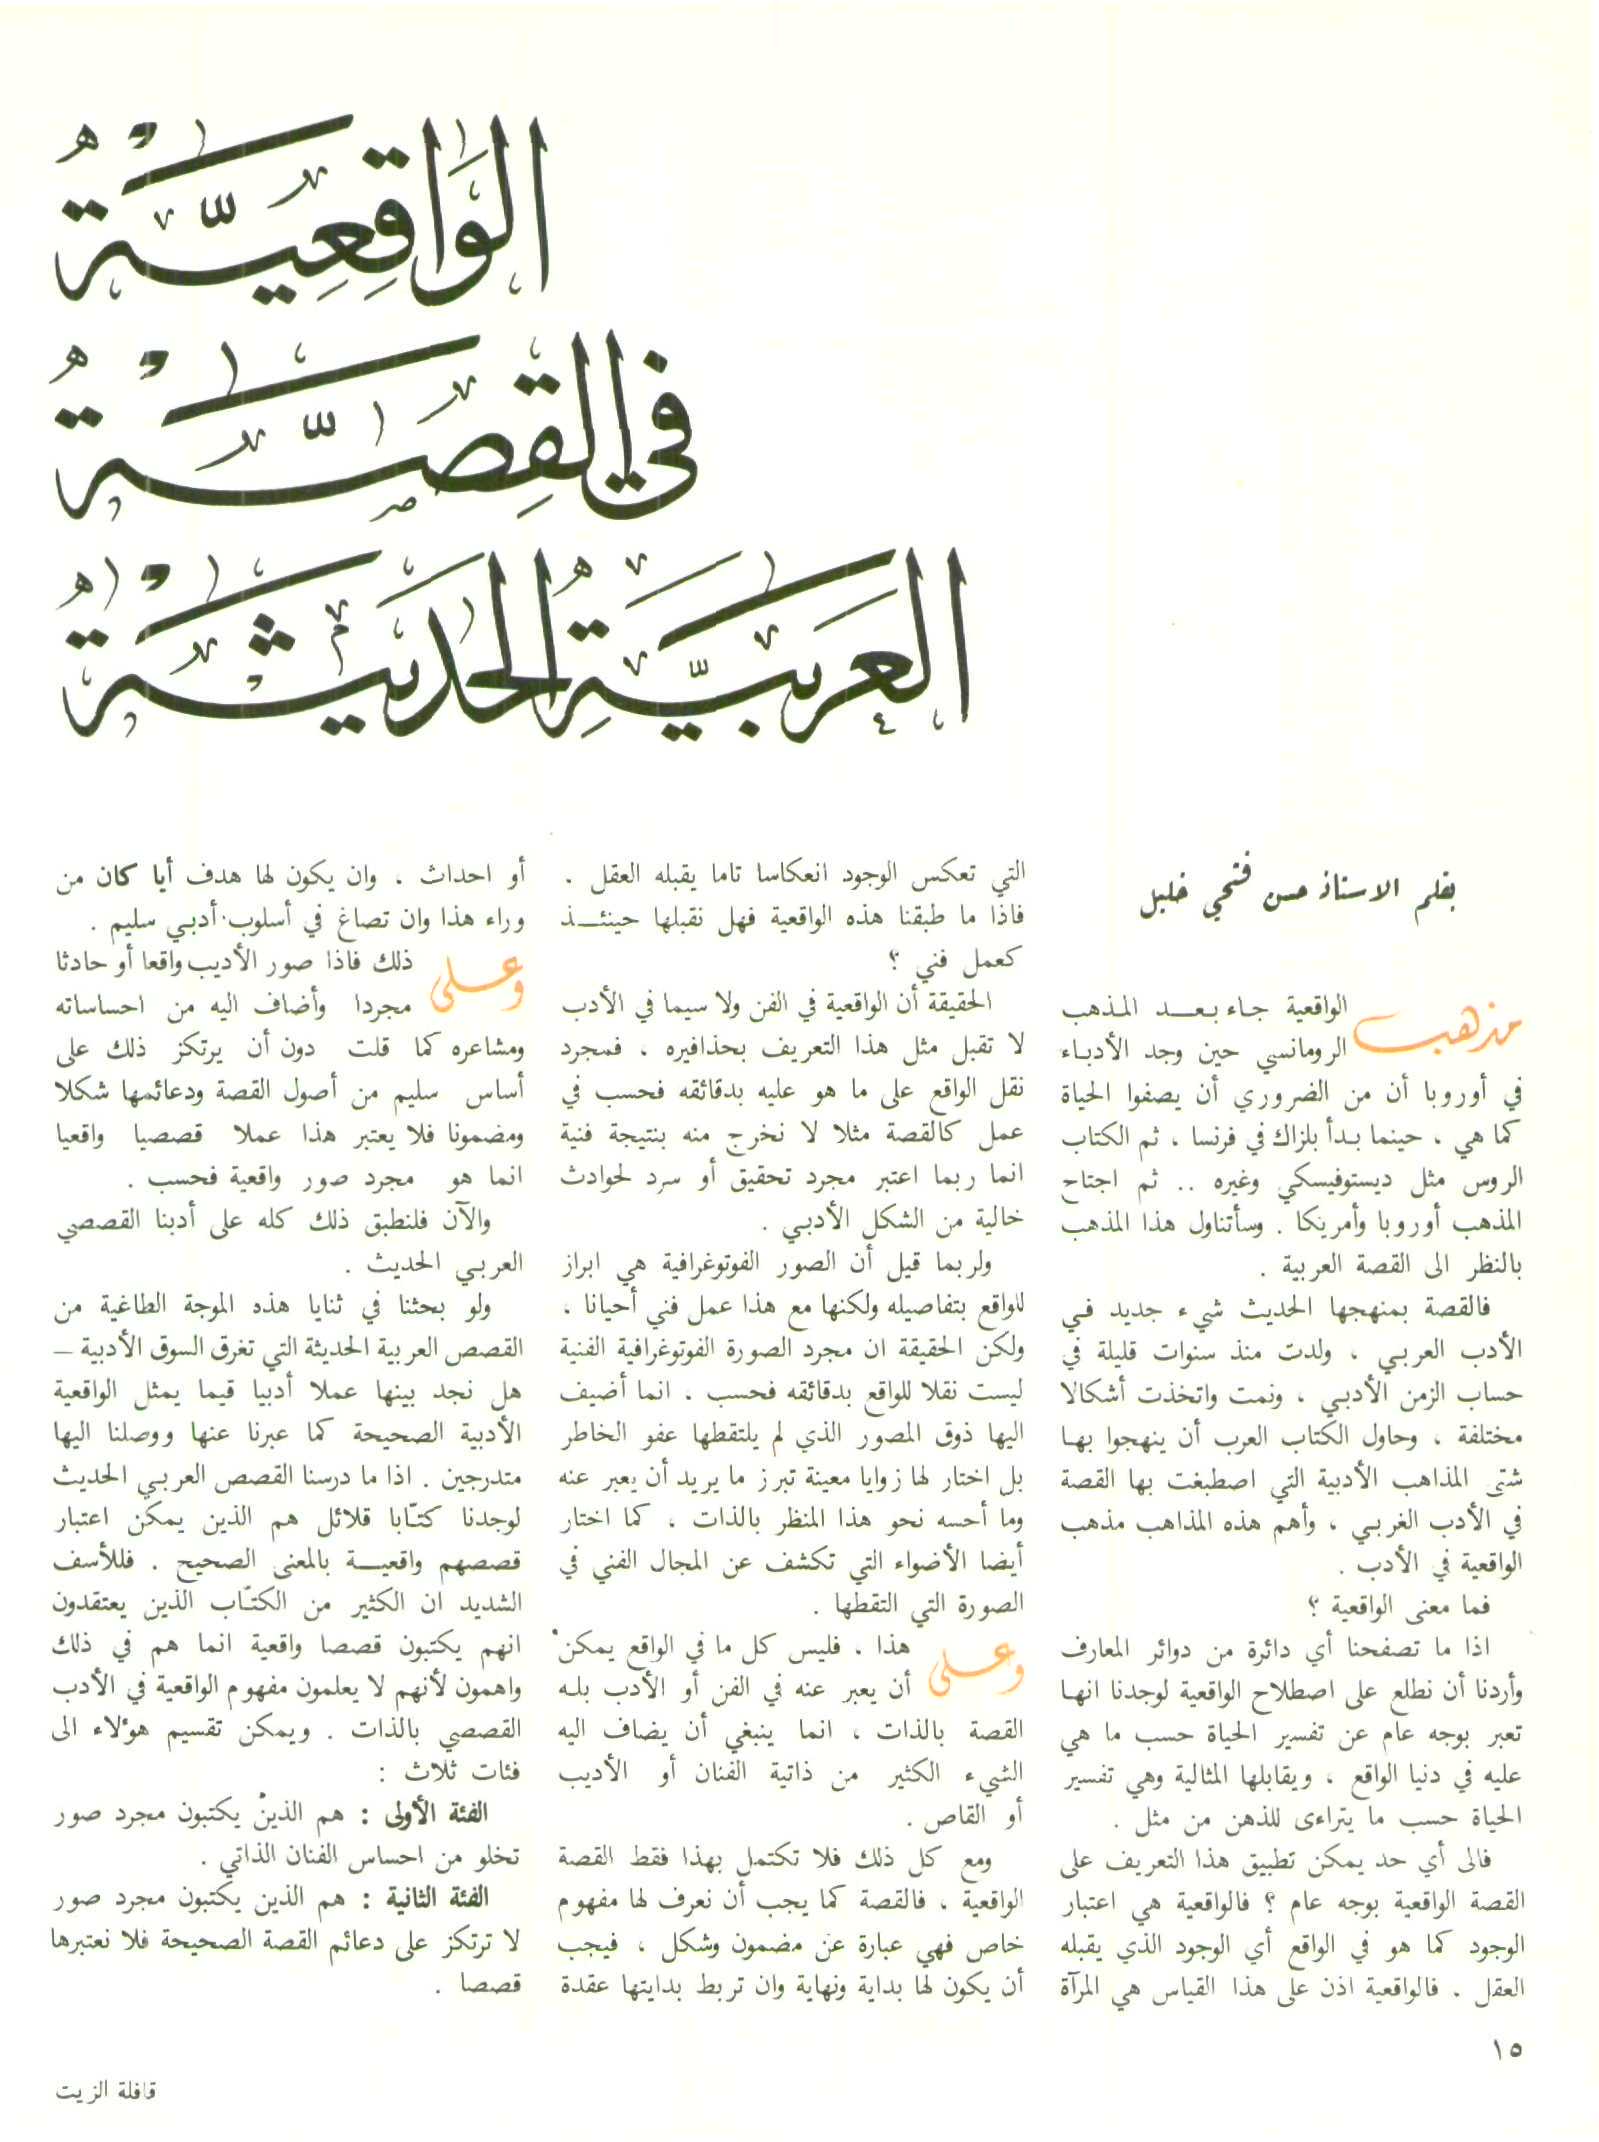 الوَاقِعِيَّةُ
في القِصَّةِ
العَرَبيَّةِ الحَديثَةُ
بقلم الاستاذ حسن فتحي خليل
مذهب الواقعية جاء بعد المذهب
الرومانسي حين وجد الأدباء
في أوروبا أن من الضروري أن يصفوا الحياة
كما هي ، حينما بدأ بلزاك في فرنسا ، ثم الكتاب
الروس مثل ديستوفيسكي وغيره .. ثم اجتاح
المذهب أوروبا وأمريكا . وسأتناول هذا المذهب
بالنظر الى القصة العربية .
فالقصة بمنهجها الحديث شيء جديد في
الأدب العربي ، ولدت منذ سنوات قليلة في
حساب الزمن الأدبي ، ونمت واتخذت أشكالا
مختلفة ، وحاول الكتاب العرب أن ينهجوا بها
شتى المذاهب الأدبية التي اصطبغت بها القصة
في الأدب الغربي ، وأهم هذه المذاهب مذهب
الواقعية في الأدب .
فما معنى الواقعية ؟
اذا ما تصفحنا أي دائرة من دوائر المعارف
وأردنا أن نطلع على اصطلاح الواقعية لوجدنا انها
تعبر بوجه عام عن تفسير الحياة حسب ما هي
عليه في دنيا الواقع ، ويقابلها المثالية وهي تفسير
الحياة حسب ما يتراءى للذهن من مثل .
فالى أي حد يمكن تطبيق هذا التعريف على
القصة الواقعية بوجه عام ؟ فالواقعية هي اعتبار
الوجود كما هو في الواقع أي الوجود الذي يقبله
العقل . فالواقعية اذن على هذا القياس هي المرآة
التي تعكس الوجود انعكاسا تاما يقبله العقل .
فاذا ما طبقنا هذه الواقعية فهل نقبلها حينئذ
كعمل فني ؟
الحقيقة أن الواقعية في الفن ولا سيما في الأدب
لا تقبل مثل هذا التعريف بحذافيره ، فمجرد
نقل الواقع على ما هو عليه بدقائقه فحسب في
عمل كالقصة مثلا لا نخرج منه بنتيجة فنية
انما ربما اعتبر مجرد تحقيق أو سرد لحوادث
خالية من الشكل الأدبي .
ولربما قيل أن الصور الفوتوغرافية هي ابراز
للواقع بتفاصيله ولكنها مع هذا عمل فني أحيانا ،
ولكن الحقيقة ان مجرد الصورة الفوتوغرافية الفنية
ليست نقلا للواقع بدقائقه فحسب . انما أضيف
اليها ذوق المصور الذي لم يلتقطها عفو الخاطر
بل اختار لها زوايا معينة تبرز ما يريد أن يعبر عنه
وما أحسه نحو هذا المنظر بالذات ، كما اختار
أيضا الأضواء التي تكشف عن المجال الفني في
الصورة التي التقطها .
وعلى هذا ، فليس كل ما في الواقع يمكن
أن يعبر عنه في الفن أو الأدب بله
القصة بالذات ، انما ينبغي أن يضاف اليه
الشيء الكثير من ذاتية الفنان أو الأديب
أو القاص .
ومع كل ذلك فلا تكتمل بهذا فقط القصة
الواقعية ، فالقصة كما يجب أن نعرف لها مفهوم
خاص فهي عبارة عن مضمون وشكل ، فيجب
أن يكون لها بداية ونهاية وان تربط بدايتها عقدة
أو احداث . وان يكون لها هدف أيا كان من
وراء هذا وان تصاغ في أسلوب أدبي سليم .
وعلى ذلك فاذا صور الأديب واقعا أو حادثا
مجردا وأضاف اليه من احساساته
ومشاعره كما قلت دون أن يرتكز ذلك على
أساس سليم من أصول القصة ودعائمها شكلا
ومضمونا فلا يعتبر هذا عملا قصصيا واقعيا
انما هو مجرد صور واقعية فحسب .
والآن فلنطبق ذلك كله على أدبنا القصصي
العربي الحديث .
ولو بحثنا في ثنايا هذه الموجة الطاغية من
القصص العربية الحديثة التي تغرق السوق الأدبية –
هل نجد بينها عملا أدبيا قيما يمثل الواقعية
الأدبية الصحيحة كما عبرنا عنها ووصلنا اليها
متدرجين . اذا ما درسنا القصص العربي الحديث
لوجدنا كتّابا قلائل هم الذين يمكن اعتبار
قصصهم واقعية بالمعنى الصحيح . فللأسف
الشديد ان الكثير من الكتّاب الذين يعتقدون
انهم يكتبون قصصا واقعية انما هم في ذلك
واهمون لأنهم لا يعلمون مفهوم الواقعية في الأدب
القصصي بالذات . ويمكن تقسيم هؤلاء الى
فئات ثلاث :
الفئة الأولى : هم الذين يكتبون مجرد صور
تخلو من احساس الفنان الذاتي .
الفئة الثانية : هم الذين يكتبون مجرد صور
لا ترتكز على دعائم القصة الصحيحة فلا نعتبرها
قصصا .
١٥
قافلة الزيت